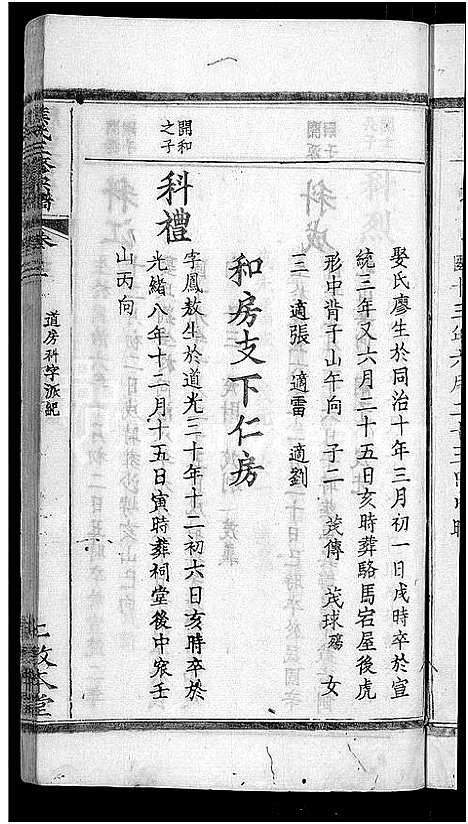 娶氏廖生於同治十年三月初一日戌時卒於宣
統三年又六月二十五日亥時葬駱馬宕屋後虎
形中背子山午向 子二 茂傳 茂球殤 女
三 適張 適雷 適劉
和房支下仁房
開和之子
科禮
字鳳敖生於道光三十年十二初六日亥時卒於
光緒八年十二月十五日寅時葬祠堂後中㝡壬
山丙向
道房科字派紀
敦本堂